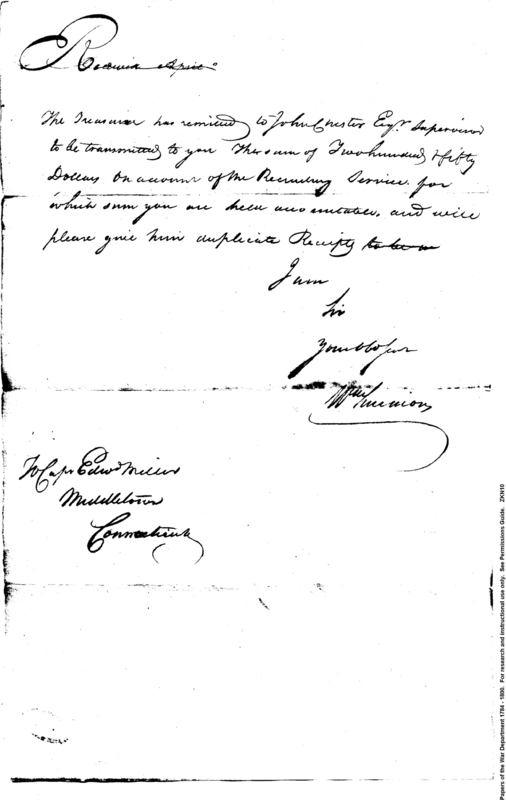 The Treasurer has remitted to John Chester Esqr. Supervisor
to be transmitted to you The sum of Two hundred & fifty
Dollars on account of the Recruiting Service for
which sum you are held accountable, and will
please give him duplicate Receipts to be
I am
Sir
Your Ob Servt
Wm Simmons
To Capt Edwd Miller
Middletown
Connecticut
Papers of the War Department 1784 - 1800. For research and instructional use only. See Permissions Guide. ZKN10